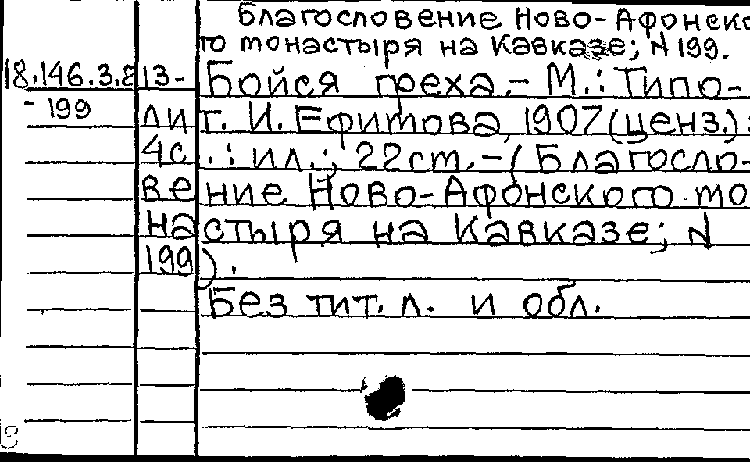 Благословение Ново-Афонско
го монастыря на Кавказе; N 199.
18.146.3.8 13- Бойся греха.- М.: Типо-
-199
лит. И. Ефимова, 1907 (ценз.).
4с.: ил.; 22см.-(Благосло-
вение Ново-Афонского мо
настыря на Кавказе; N
199).
Без тит. л. и обл.